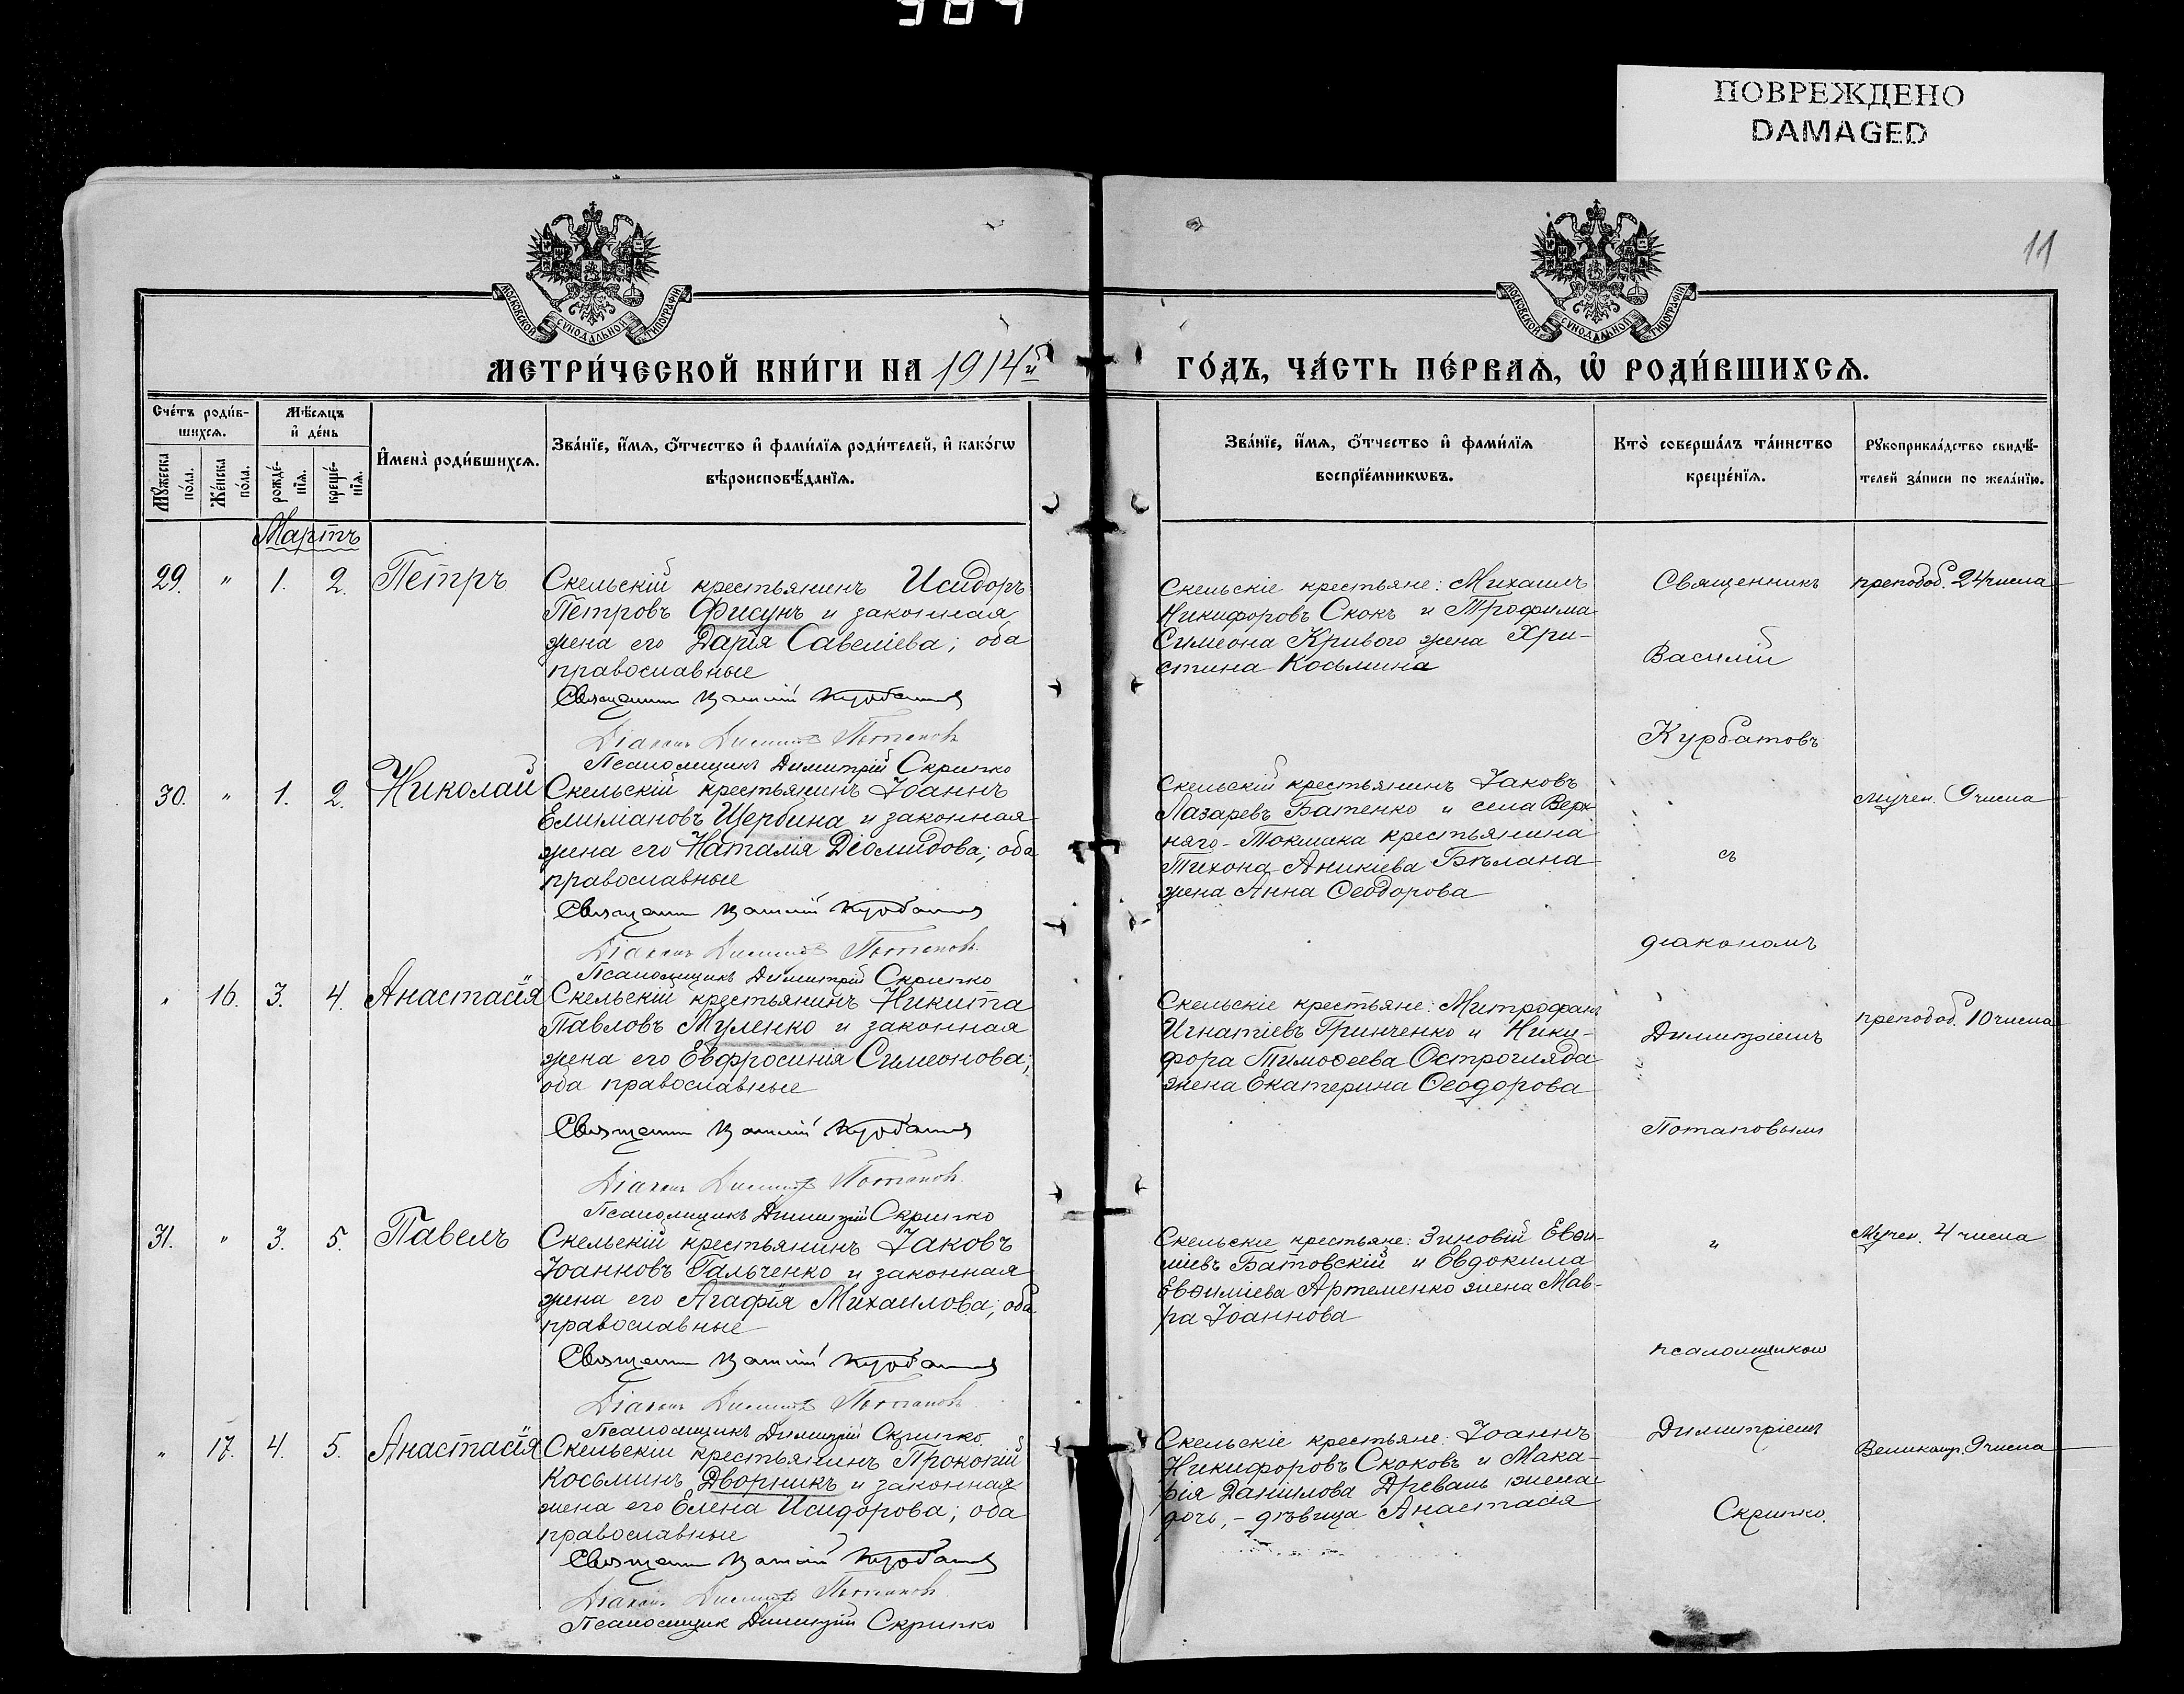 984
ПОВРЕЖДЕНО
DAMAGED
11
МОСКОВСКОЙ СѴНОДАЛЬНОЙ ТИПОГРАФІИ
МОСКОВСКОЙ СѴНОДАЛЬНОЙ ТИПОГРАФІИ
МЕТРИ́ЧЕСКОЙ КНИ́ГИ НА 1914й
ГО́ДЪ, ЧА́СТЬ ПЕ́РВАѦ, Ѡ҆ РОДИ́ВШИХСѦ.
Сче́тъ роди́в-
шихсѧ.
Мѣ́сѧцъ
и҆ де́нь
Мꙋ́жеска
по́ла.
Же́нска
по́ла.
рожде́-
нїѧ.
креще́-
нїѧ.
И҆мена̀ роди́вшихсѧ.
Зва́нїе, и҆́мѧ, ѻ҆́тчество и҆ фами́лїѧ роди́телей, и҆ како́гѡ
вѣроисповѣ́данїѧ.
Зва́нїе, и҆́мѧ, ѻ҆́тчество и҆ фами́лїѧ
воспрїе́мникѡвъ.
Кто̀ соверша́лъ та́инство
креще́нїѧ.
Рꙋкоприкла́дство свидѣ́-
телей за́писи по жела́нїю.
Мартъ
29. " 1. 2. Петръ
Скельскій крестьянинъ Исидоръ
Петровъ Фисунъ и законная
жена его Дарія Савеліева; оба
православные
Священникъ Василій Курбатовъ
Діаконъ Димитрій Потаповъ
Псаломщикъ Димитрій Скрипко
Скельскіе крестьяне: Михаилъ
Никифоровъ Скокъ и Трофима
Симеона Кривого жена Хри-
стина Косьмина
Священникъ
Василій
Курбатовъ
преподоб. 24 числа
30. " 1. 2. Николай
Скельскій крестьянинъ Іоаннъ
Елимановъ Щербина и законная
жена его Наталія Діомидова; оба
православные
Священникъ Василій Курбатовъ
Діаконъ Димитрій Потаповъ
Псаломщикъ Димитрій Скрипко
Скельскій крестьянинъ Іаковъ
Лазаревъ Батенко и села Верх
няго-Токмака крестьянина
Тихона Аникіева Бѣлана
жена Анна Ѳеодорова
съ
діакономъ
мучен. 9 числа
" 16. 3. 4. Анастасія
Скельскій крестьянинъ Никита
Павловъ Муленко и законная
жена его Евфросинія Симеонова;
оба православные
Священникъ Василій Курбатовъ
Діаконъ Димитрій Потаповъ
Псаломщикъ Димитрій Скрипко
Скельскіе крестьяне: Митрофанъ
Игнатіевъ Гринченко и Ники-
фора Тимоѳеева Остроглядa
жена Екатерина Ѳеодорова
Димитріемъ
Потаповымъ
преподоб. 10 числа
31. " 3. 5. Павелъ
Скельскій крестьянинъ Іаковъ
Іоанновъ Гальченко и законная
жена его Агафія Михаилова; оба
православные
Священникъ Василій Курбатовъ
Діаконъ Димитрій Потаповъ
Псаломщикъ Димитрій Скрипко
Скельскіе крестьяне: Зиновій Евѳи-
міевъ Батовскій и Евдокима
Евѳиміева Артеменко жена Мав-
ра Іоаннова
и
псаломщикомъ
Мучен. 4 числа
" 17. 4. 5. Анастасія
Скельскій крестьянинъ Прокопій
Косьминъ Дворникъ и законная
жена его Елена Исидорова; оба
православные
Священникъ Василій Курбатовъ
Діаконъ Димитрій Потаповъ
Псаломщик Димитрій Скрипко
Скельскіе крестьяне: Іоаннъ
Никифоровъ Скоковъ и Мака-
рія Даніилова Древаль жена
дочь, - дѣвица Анастасія
Димитріемъ
Скрипко.
Великомуч. 9 числа